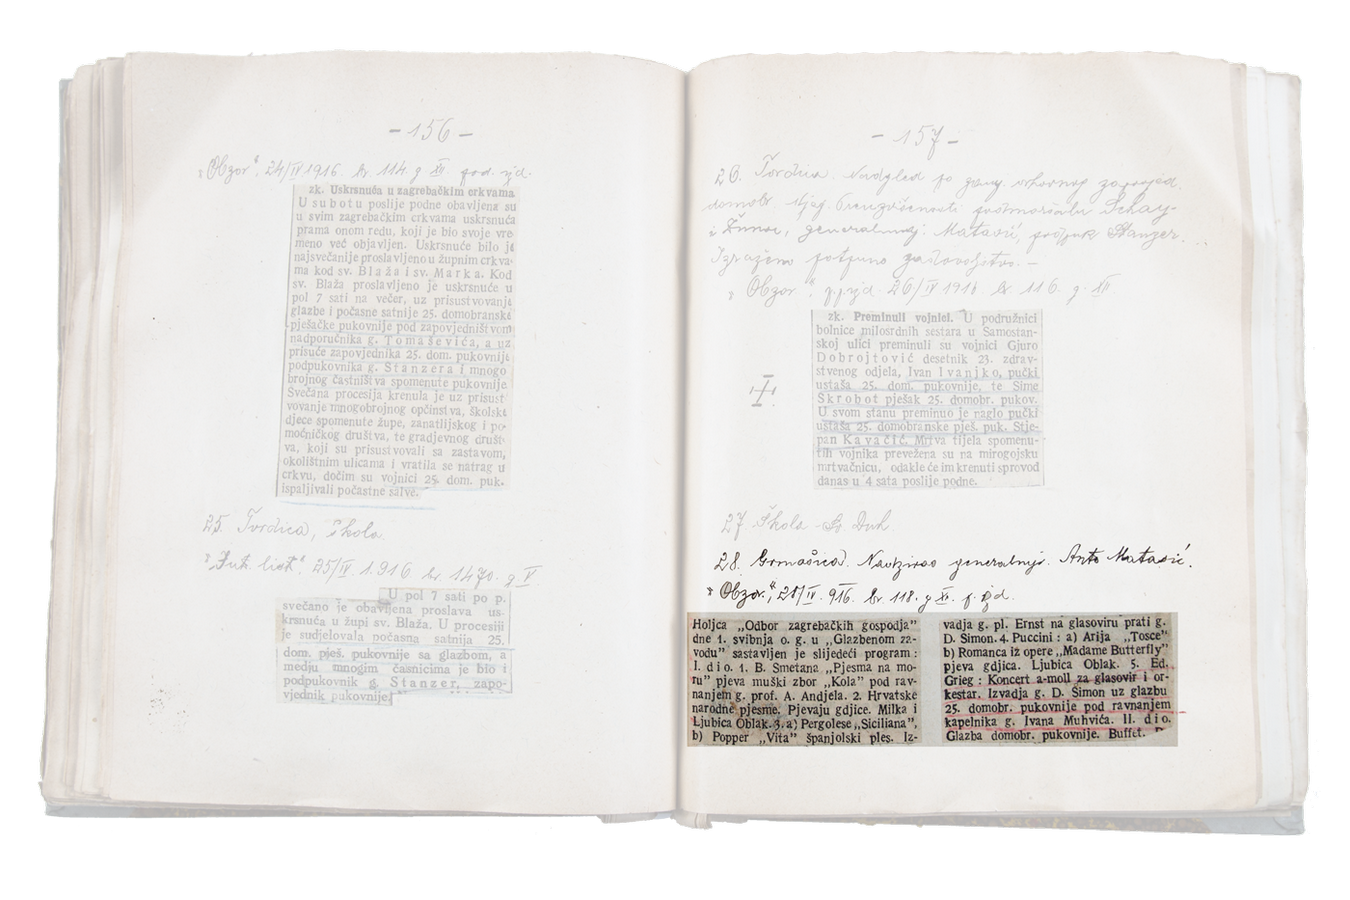 - 156 -
„Obzor“. 24/IV 1916. br. 114. g XII. pod. izd.
zk. Uskrsnuća u zagrebačkim crkvama
U subotu poslije podne obavljena su
u svim zagrebačkim crkvama uskrsnuća
prama onom redu, koji je bio svoje vre-
meno već objavljen. Uskrsnuće bilo je
najsvečanije proslavljeno u župnim crkva-
ma kod sv. Blaža i sv. Marka. Kod
sv. Blaža proslavljeno je uskrsnuće u
pol 7 sati na večer, uz prisustvovanje
glazbe i počasne satnije 25. domobranske
pješačke pukovnije pod zapovjedništvom
nadporučnika g. Tomaševića, a uz
prisuće zapovjednika 25. dom. pukovnije
podpukovnika g. Stanzera i mnogo
brojnog častništva spomenute pukovnije.
Svečana procesija krenula je uz prisust
vovanje mnogobrojnog općinstva, školske
djece spomenute župe, zanatlijskog i po-
moćničkog društva, te gradjevnog društ-
va, koji su prisustvovali sa zastavom,
okolištnim ulicama i vratila se natrag u
crkvu, dočim su vojnici 25. dom. puk.
ispaljivali počastne salve.
25. Tvrdica, škola.
„Jut. list“. 25/IV. 1.916. br. 1470. g V.
U pol 7 sati po p.
svečano je obavljena proslava us-
krsnuća u župi sv. Blaža. U procesiji
je sudjelovala počasna satnija 25.
dom. pješ. pukovnije sa glazbom, a
medju mnogim časnicima je bio i
podpukovnik g. Stanzer, zapo-
vjednik pukovnije.
- 157 -
26. Tvrdica. Nadgled po
domobr. Njeg. Preuzvišenosti podmaršalu Schay-
i generalmj. Matasić, podpuk Stanzer.
Izraženo potpuno zadovoljstvo. -
„Obzor“. 26/IV 1916. br. 116. g. XII.
zk. Preminuli vojnici. U podružnici
bolnice milosrdnih sestara u Samostan-
skoj ulici preminuli su vojnici Gjuro
Dobrojtović desetnik 23. zdrav-
stvenog odjela, Ivan Ivanjko, pučki
ustaša 25. dom. pukovnije, te Sime
Škrobot pješak 25. domobr. pukov.
U svom stanu preminuo je naglo pučki
ustaša 25. domobranske pješ. puk. Stje-
pan Kavačić. Mrtva tijela spomenu-
tih vojnika prevežena su na mirogojsku
mrtvačnicu, odakle će im krenuti sprovod
danas u 4 sata poslije podne.
27 Škola - Sv. Duh
28. Grmašica. Nadzirao generalmjr. Anto Matasić.
„Obzor“, 28/IV. 916. br. 118. g XI. p. izd.
Holjca „Odbor zagrebačkih gospodja“
dne 1. svibnja o. g. u „Glazbenom za-
vodu“ sastavljen je slijedeći program:
I. dio. 1. B. Smetana „Pjesma na mo-
ru“ pjeva muški zbor „Kola“ pod rav-
nanjem g. prof. A. Andjela. 2. Hrvatske
narodne pjesme. Pjevaju gdjice. Milka i
Ljubica Oblak. 3. a) Pergolese „Siciliana“,
b) Popper „Vita“ španjolski ples. Iz-
vadja g. pl. Ernst na glasoviru prati g.
D. Simon. 4. Puccini: a) Arija „Tosce“
b) Romanca iz opere „Madame Butterfly“
pjeva gdjica. Ljubica Oblak. 5. Ed.
Grieg: Koncert a-moll za glasovir i or-
kestar. Izvadja g. D. Simon uz glazbu
25. domobr. pukovnije pod ravnanjem
kapelnika g. Ivana Muhvića. II. dio.
Glazba domobr. pukovnije. Buffet.